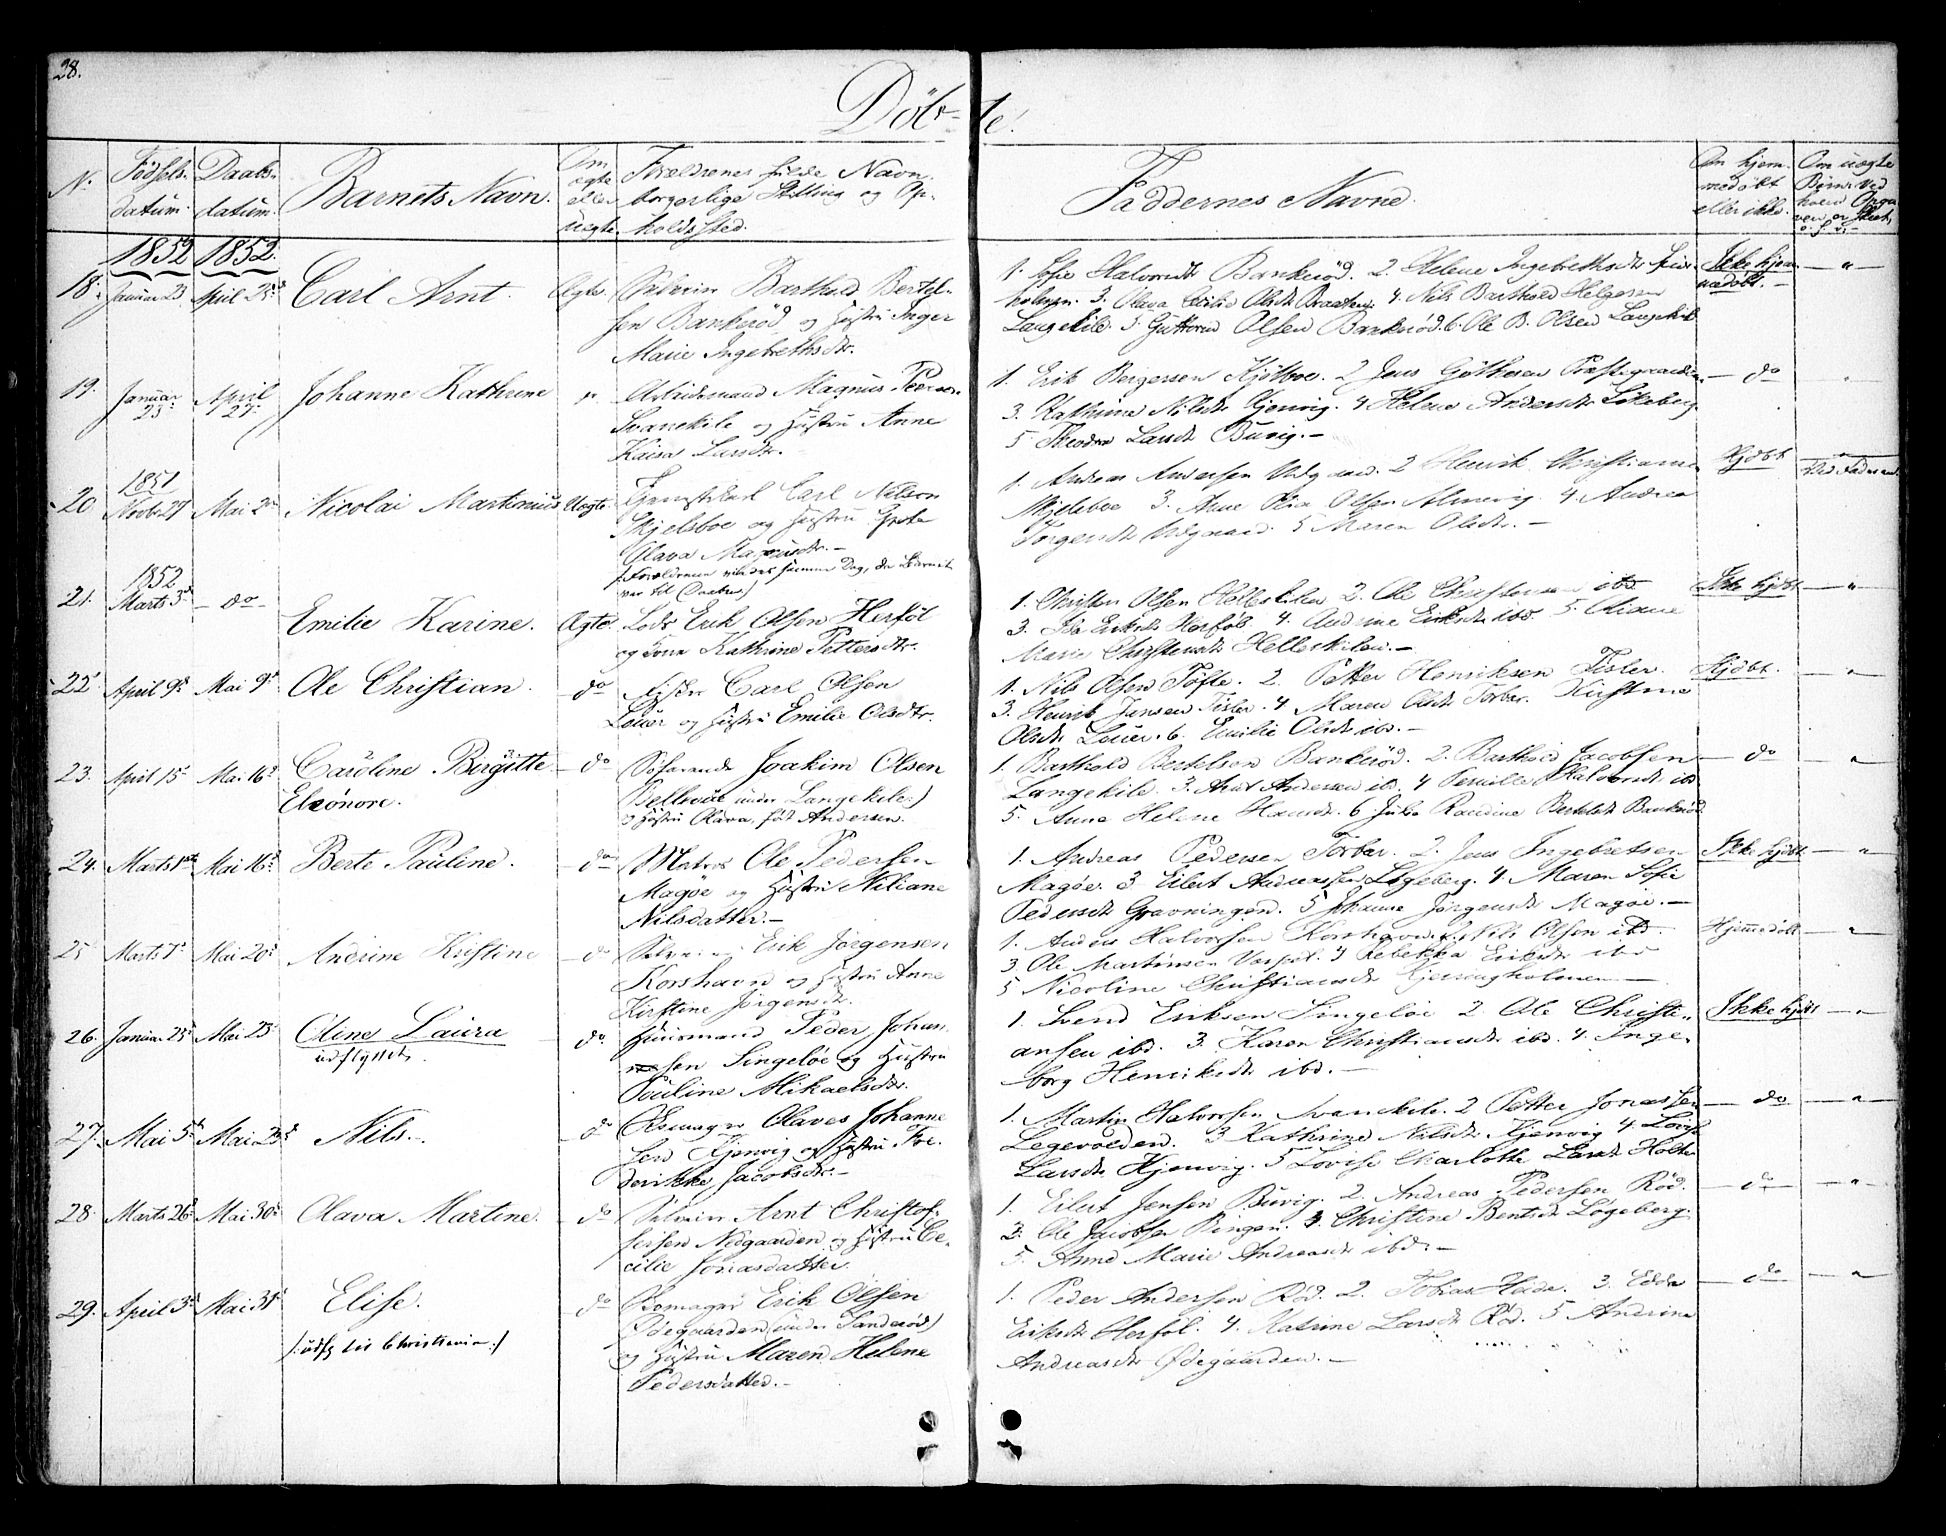 28.
Döb-te.
N. Fødsels- datum. Daabs- datum. Barnets Navn. Om ægte eller uægte. Forældrenes fulde Navn, borgerlige Stilling og Opholdssted.
Faddernes Navne.
Om hjemmedøbt eller ikke. Om uægte Børn
1852 1852.
18. Januar 23 April 25 Carl Arnt. Ægte.
Barthold Bertel-
sen Bankerød og Hustru Inger
Marie Ingebrethsdtr.
1. Sofie Halvorsdt Bankerød. 2. Helene Ingebrethsdt
3. Olava 4. Nils Barthold Helgesen
Langekile. 5. Guttorm Olsen Bankerød. 6. Ole B. Olsen Langekil
Ikke hjem
medøbt. — " —
19. Januar 23 April 27. Johanne Kathrine "
Magnus
Svanekile og Hustru Anne
Kaisa Larsdtr.
1. Erik Bergersen Kjölboe. 2 Jens
3. Kathrine Nilsdt Kjenvig. 4 Helene Andersdt Lökeberg
5 Larsdt Buvig. —
— do
1851
20. Novbr 27 Mai 2 Nicolai Martinius Uægte
Carl Nilsen
Skjelsboe og Hustru Grete
Olava
(Forældrene viedes samme Dag, da Barnet
var til Daaben)
1. Andreas Andersen 2 Henrik Christians
Skjelsboe 3. Anne Olsen 4 Andrea
Jörgensdt 5 Maren Olsdtr. —
Hjdbt
1852
21. Marts 3 — do — Emilie Karine. Ægte.
Lods Erik Olsen Herföl
og Kone Kathrine Pettersdtr.
1. Christen Olsen Helleskilen 2. Ole Christensen ibd
3. Ida Eriksdt Herföl 4. Eriksdt ibd. 5. Oliane
Marie Christensdt Helleskilen. —
Ikke hjdbt — "
22 April 9 Mai 9 Ole Christian. do
Fisker Carl Olsen
Lauer og Hustru Emilie Olsdtr.
1. Nils Olsen Tofte. 2. Petter Henriksen Tisler.
3. Henrik Jensen Tisler. 4 Maren Olsdt Torber. Kirstine
Olsdt Lauer. 6. Emilie Olsdt ibd. —
Hjdbt. — "
23. April 15 Mai 16 Caroline Birgitte — do
Eleonore.
Søfarende Joakim Olsen
Bellevue under Langekile.)
og Hustru Olava, föt Andersen.
1. Barthold Bertelsen Bankerød. 2. Barthold Jacobsen
Langekile. 3. Arnt Andersen ibd. 4 Pernille Halvorsdt ibd
5. Anne Helene Hansdt. 6 Julie Randine Bertelsdt Bankerød
— do — "
24. Marts 1 Mai 16 Berte Pauline. do
Matros Ole Pedersen
Magöe og Hustru Niliane
Nilsdatter. —
1. Andreas Pedersen Torber. 2. Jens Ingebretsen
Magöe. 3 Eilert Andreassen Lögeberg. 4. Maren Sofie
Pedersdt Gravningen. 5 Johanne Jörgensdt Magöe. —
Ikke hjdbt — "
25 Marts 7 Mai 20 Andrine Kristine — do
Erik Jörgensen
Korshavn og Hustru Anne
Kirstine Jörgensdt.
1. Anders Halvorsen Korshavn. 2. Nils Olsen ibd.
3 Ole Martinsen 4 Rebekka Eriksdt ibd
5 Nicoline Christiansdt
Hjemmedöbt — "
26. Januar 25 Mai 23 Oline Laura do
udflyttet.
Huusmand Peder Johan-
sen Singelöe og Hustru
Pauline Mikaelsdtr.
1. Svend Eriksen Singelöi 2. Ole Christi-
ansen ibd. 3. Karen Christiansdt ibd. 4. Inge-
borg Henriksdt ibd. —
Ikke hjdbt — "
27. Mai 5 Mai 23 Nils. do
Olaves Johanne
sen Kjenvig og Hustru Fre-
derikke Jacobsdtr. —
1. Martin Halvorsen Svanekile. 2 Petter Jonassen
Legevolden. 3 Kathrine Nilsdt Kjenvig 4. Lovise
Larsdt Kjenvig. 5 Lovise Charlotte Larsdt
— do — "
28. Marts 26 Mai 30 Olava Martine. do
Arnt Christof-
fersen Nedgaarden og Hustru Ce-
cilie Jonasdatter.
1. Eilert Jensen Buvig. 2. Andreas Pedersen Röd.
3. Ole Jacobsen 4 Christine Bentsdt Lögeberg.
5. Anne Marie Andreasdt ibd. —
— do — "
29. April 3 Mai 31 Elise. do
(: udfl til Christiania :)
Erik Olsen
Ödegaarden (under Sanderød)
og Hustru Maren Helene
Pedersdatter. —
1. Peder Andersen Röd. 2. Tobias 3.
Eriksdt Herföl. 4. Katrine Larsdt Röd. 5 Andrine
Andreasdt Ödegaarden. —
— do — "